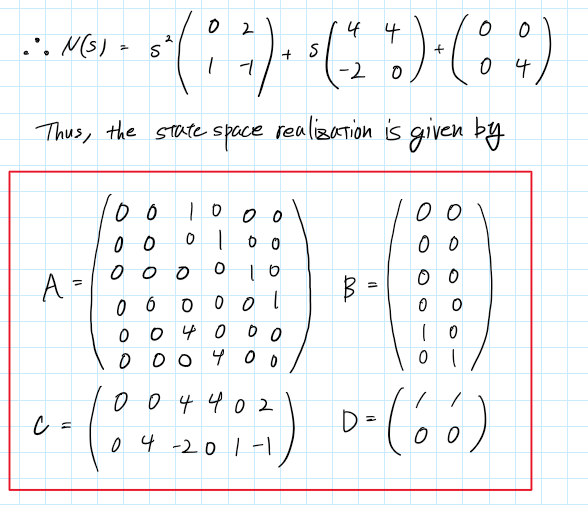 ∴ N(s) = s² ( 0 2 ; 1 -1 ) + s ( 4 4 ; -2 0 ) + ( 0 0 ; 0 4 )
Thus, the state space realization is given by
A = ( 0 0 1 0 0 0 ; 0 0 0 1 0 0 ; 0 0 0 0 1 0 ; 0 0 0 0 0 1 ; 0 0 4 0 0 0 ; 0 0 0 4 0 0 ) B = ( 0 0 ; 0 0 ; 0 0 ; 0 0 ; 1 0 ; 0 1 )
C = ( 0 0 4 4 0 2 ; 0 4 -2 0 1 -1 ) D = ( 1 1 ; 0 0 )